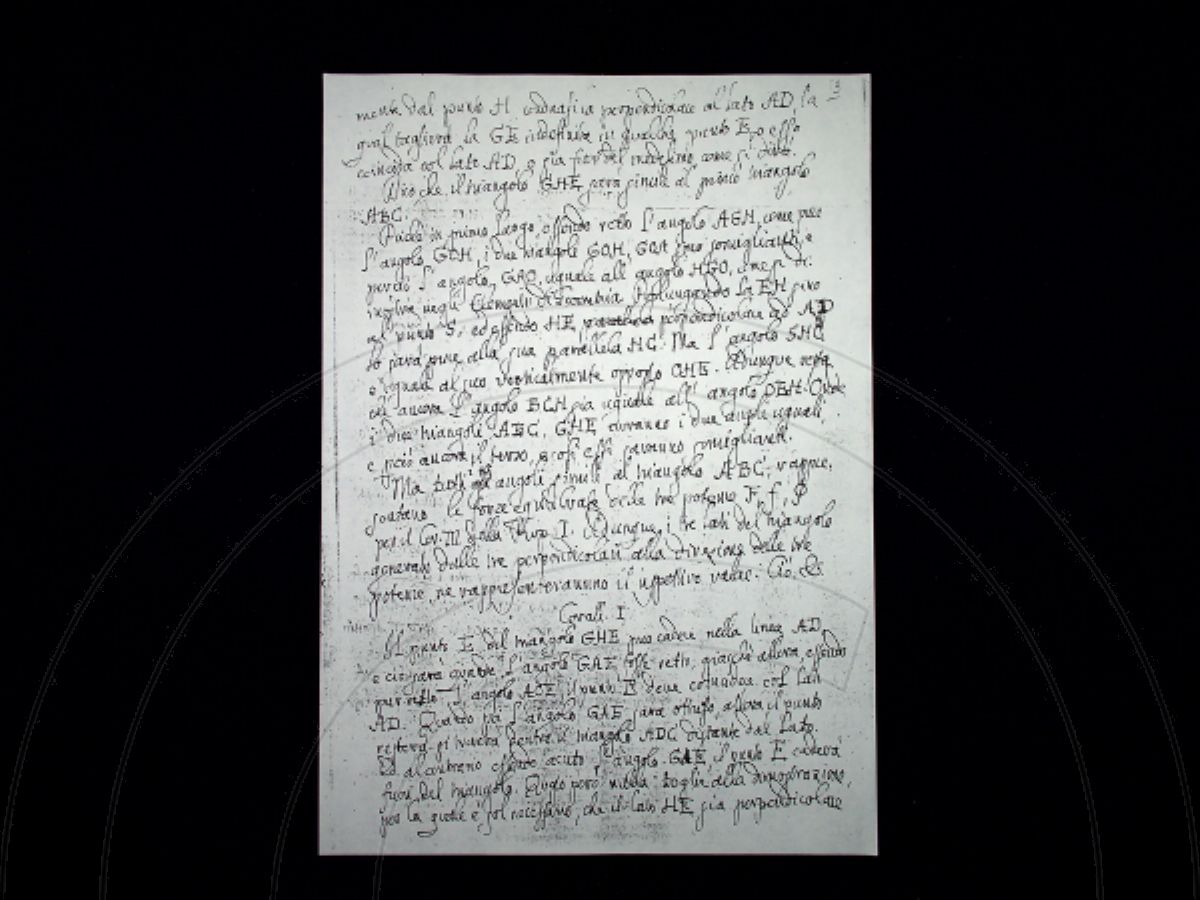 mente dal punto H conducasi la perpendicolare al lato AD, la
3
qual taglierà la GE indefinita in qualche punto E, o esso
coincida col lato AD, o sia fuor del medesimo, come si disse.
Dico che il triangolo GHE sarà simile al primo triangolo
ABC.
Poichè in primo luogo, essendo retto l'angolo AGH, come pure
l'angolo GOH, i due triangoli GOH, GOA sono somiglianti, e
perciò l'angolo GAO uguale all'angolo HGO, come si di-
negli Elementi Prolungando la EH sino
al punto S, ed essendo HE perpendicolare ad AD
lo sarà pure alla sua parallela HC. Ma l'angolo SHC
è uguale al suo verticalmente opposto OHE. Dunque resta
che ancora l'angolo BCH sia uguale all'angolo OEH. Onde
i due triangoli ABC, GHE avranno i due angoli uguali,
e perciò ancora il terzo, e così essi saranno somiglianti.
Ma tutti gli angoli simili al triangolo ABC, rappre-
sentano le forze equilibrate delle tre potenze F, f, P
per il Cor. III della Prop. I. Dunque i tre lati del triangolo
generato dalle tre perpendicolari alla direzione delle tre
potenze, ne rappresenteranno il rispettivo valore. Ciò, ch.
Coroll. I
Il punto E del triangolo GHE può cadere nella linea AD,
e ciò sarà quando l'angolo GAE fosse retto, giacchè allora, essendo
pur retto l'angolo AGE, il punto E deve coincidere col lato
AD. Quando poi l'angolo GAE sarà ottuso, allora il punto
resterà dentro il triangolo ADC distante dal lato.
Ed al contrario essendo acuto l'angolo GAE, il punto E caderà
fuori del triangolo. Questo però nulla toglie alla dimostrazione,
per la quale è sol necessario, che il lato HE sia perpendicolare